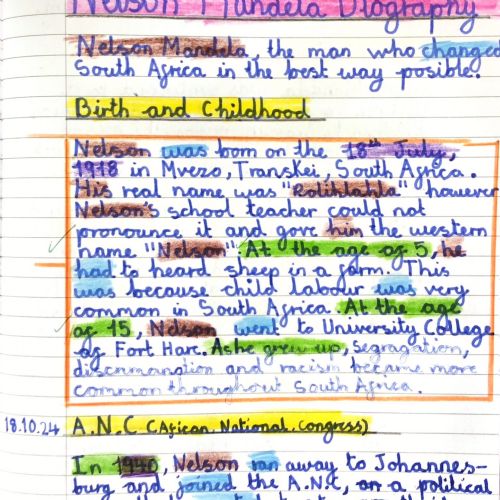 Nelson Mandela Biography
Nelson Mandela, the man who changed
South Africa in the best way posible.
Birth and Childhood
Nelson was born on the 18th July,
1918 in Mvezo, Transkei, South Africa.
His real name was "Rolihlahla" however
Nelson's school teacher could not
pronounce it and gave him the western
name "Nelson". At the age of 5, he
had to heard sheep in a farm. This
was because child labour was very
common in South Africa. At the age
of 15, Nelson went to University College
of Fort Hare. As he grew up, segragation,
discrimanation and racism became more
common throughout South Africa.
18.10.24 A.N.C (African National Congress)
In 1940, Nelson ran away to Johannes-
burg and joined the A.N.C, on a political